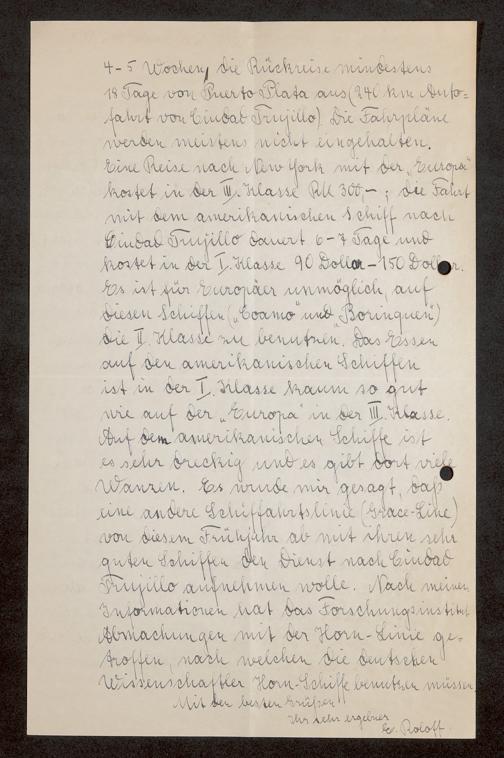 4-5 Wochen, die Rückreise mindestens
18 Tage von Puerto Plata aus (240 km Auto=
fahrt von Ciudad Trujillo) Die Fahrpläne
werden meistens nicht eingehalten.
Eine Reise nach New York mit der „Europa"
kostet in der III. Klasse RM 300,-; die Fahrt
mit dem amerikanischen Schiff nach
Ciudad Trujillo dauert 6-7 Tage und
kostet in der I. Klasse 90 Dollar - 150 Dollar.
Es ist für Europäer unmöglich, auf
diesen Schiffen („Coamo" und „Borinquen")
die II. Klasse zu benutzen. Das Essen
auf den amerikanischen Schiffen
ist in der I. Klasse kaum so gut
wie auf der „Europa" in der III. Klasse.
Auf dem amerikanischen Schiffe ist
es sehr dreckig und es gibt dort viele
Wanzen. Es wurde mir gesagt, daß
eine andere Schiffahrtslinie (Grace-Line)
von diesem Frühjahr ab mit ihren sehr
guten Schiffen den Dienst nach Ciudad
Trujillo aufnehmen wolle. Nach meinen
Informationen hat das Forschungsinstitut
Abmachungen mit der Horn-Linie ge-
troffen, nach welchen die deutschen
Wissenschaftler Horn-Schiffe benutzen müssen
Mit den besten Grüßen
Ihr sehr ergebner
E. Roloff.